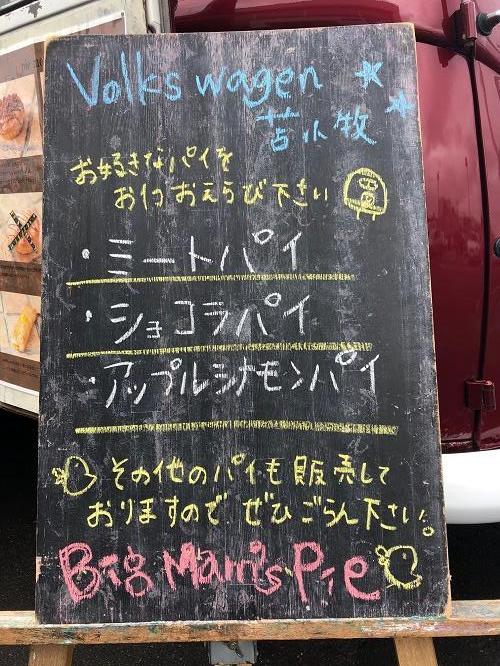 Volks wagen
苫小牧
お好きなパイを
お1つおえらび下さい
・ミートパイ
・ショコラパイ
・アップルシナモンパイ
その他のパイも販売して
おりますので ぜひごらん下さい。
Big Mam's Pie